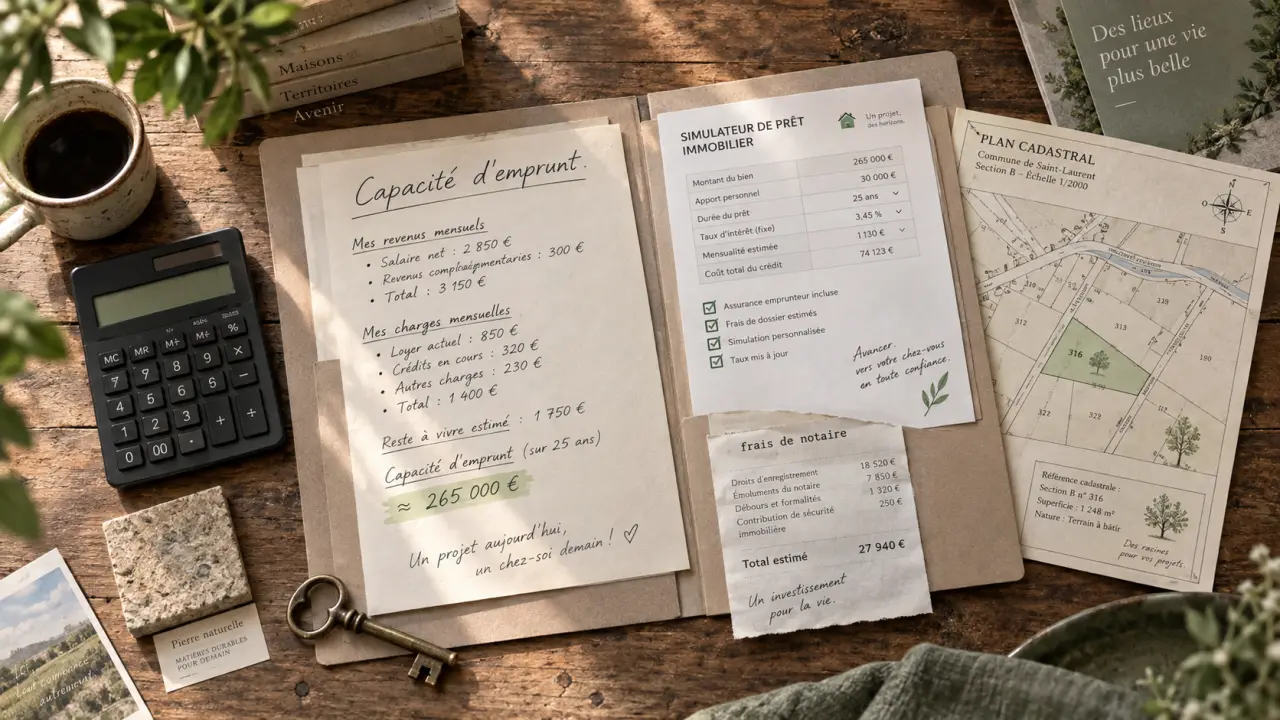 Maisons
Territoires
Avenir
Des lieux
pour une vie
plus belle
Capacité d'emprunt.
Mes revenus mensuels
• Salaire net : 2 850 €
• Revenus : 300 €
• Total : 3 150 €
Mes charges mensuelles
• Loyer actuel : 850 €
• Crédits en cours : 320 €
• Autres charges : 230 €
• Total : 1 400 €
Reste à vivre estimé : 1 750 €
Capacité d'emprunt (sur 25 ans)
≈ 265 000 €
Un projet aujourd'hui,
un chez-soi demain ! ♡
SIMULATEUR DE PRÊT
IMMOBILIER
Un projet,
des horizons.
Montant du bien 265 000 €
Apport personnel 30 000 €
Durée du prêt 25 ans
Taux d'intérêt (fixe) 3,45 %
Mensualité estimée 1 130 €
Coût total du crédit 74 123 €
Assurance emprunteur incluse
Frais de dossier estimés
Simulation personnalisée
Taux mis à jour
Avancer
vers votre chez-vous
en toute confiance.
frais de notaire
Droits d'enregistrement 18 520 €
Émoluments du notaire 7 850 €
Débours et formalités 1 320 €
Contribution de sécurité 250 €
immobilière
Total estimé 27 940 €
Un investissement
pour la vie.
PLAN CADASTRAL
Commune de Saint-Laurent
Section B – Échelle 1/2000
N
O E
S
310
318
312
313
316
180
322
322
Référence cadastrale :
Section B n° 316
Superficie : 1 248 m²
Nature : Terrain à bâtir
Des racines
pour vos projets.
MC MR M÷ M÷ %
7 7 8 9 ×
4 5 6 5 −
1 2 3 + ÷
0 00 ·
Pierre naturelle
MATIÈRES DURABLES
POUR DEMAIN
autrement.